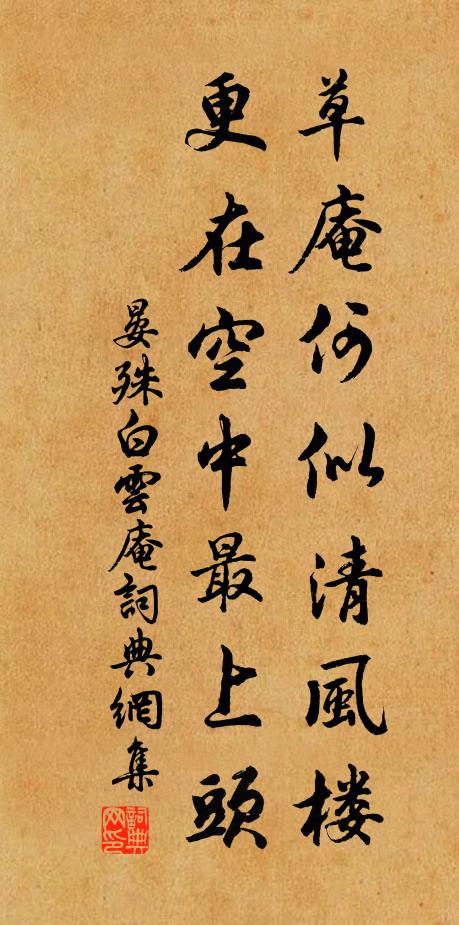 草庵何似清風楼
更在空中最上頭
晏殊白雲庵詞典網集
詞典网印